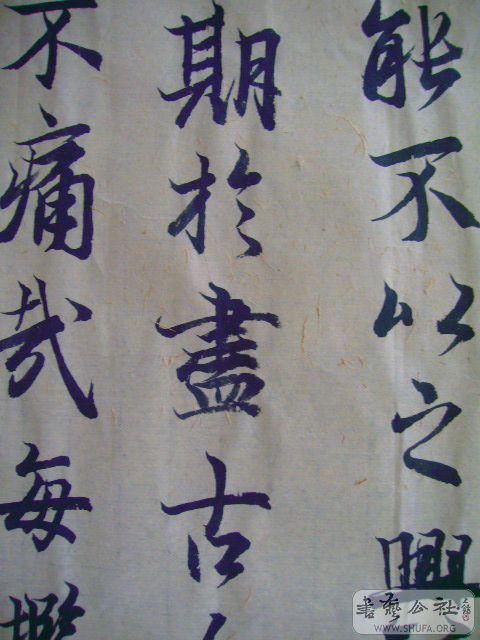 能不以之興
期於盡古
不痛哉每
書藝公社
WWW.SHUFA.ORG